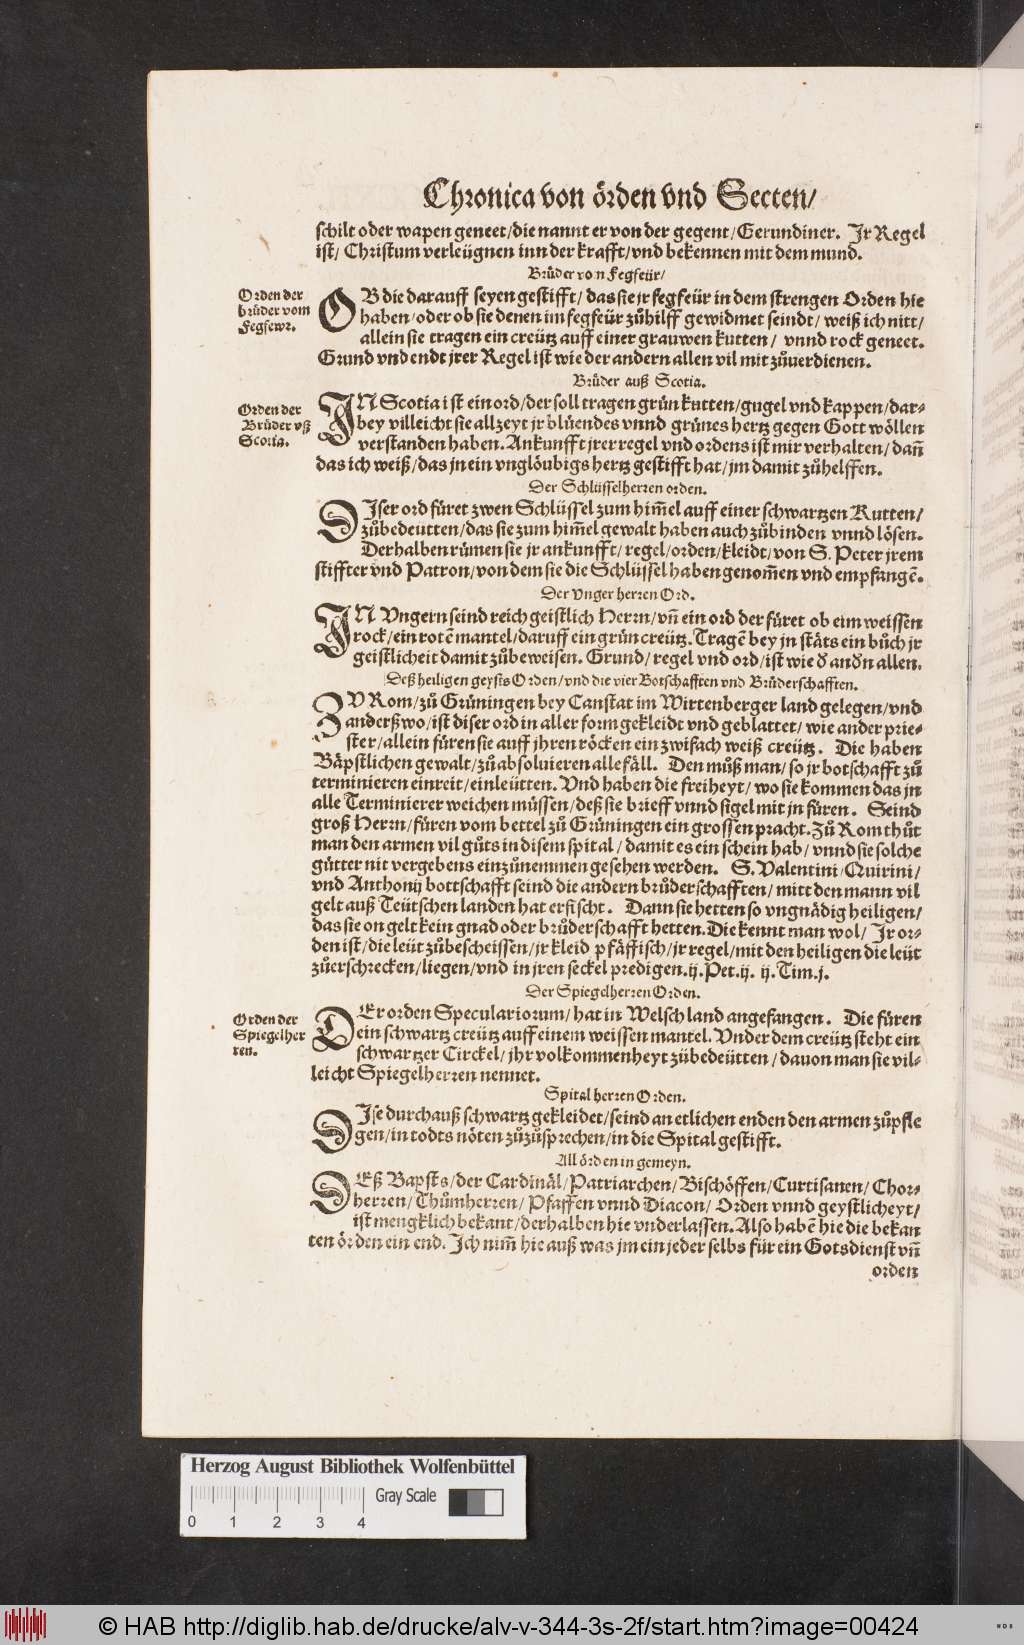 Chronica von örden vnd Secten/
schilt oder wapen geneet/die nannt er von der gegent/Gerundiner. Jr Regel
ist/ Christum verleügnen inn der krafft/vnd bekennen mit dem mund.
Brůder von Fegfeür/
Orden der
brůder vom
Fegfewr.
OB die darauff seyen gestifft/ das sie jr fegfeür in dem strengen Orden hie
haben/oder ob sie denen im fegfeür zůhilff gewidmet seindt/ weiß ich nitt/
allein sie tragen ein creütz auff einer grauwen kutten/ vnnd rock geneet.
Grund vnd endt jrer Regel ist wie der andern allen vil mit zůuerdienen.
Brůder auß Scotia.
Orden der
Brůder vß
Scotia.
JN Scotia ist ein ord/der soll tragen grün kutten/gugel vnd kappen/dar-
bey villeicht sie allzeyt jr blüendes vnnd grünes hertz gegen Gott wöllen
verstanden haben. Ankunfft jrer regel vnd ordens ist mir verhalten/dañ
das ich weiß/das jn ein vnglöubigs hertz gestifft hat/jm damit zůhelffen.
Der Schlüsselherren orden.
DJser ord füret zwen Schlüssel zum him̃el auff einer schwartzen Kutten/
zůbedeütten/das sie zum him̃el gewalt haben auch zůbinden vnnd lösen.
Derhalben rümen sie jr ankunfft/ regel/orden/kleidt/von S. Peter jrem
stiffter vnd Patron/von dem sie die Schlüssel haben genom̃en vnd empfangē.
Der Vnger herren Ord.
JN Vngern seind reich geistlich Herrn/vñ ein ord der füret ob eim weissen
rock/ein rotē mantel/daruff ein grün creütz. Tragē bey jn stäts ein bůch jr
geistlicheit damit zůbeweisen. Grund/ regel vnd ord/ist wie ð anðn allen.
Deß heiligen geysts Orden/vnd die vier Botschafften vnd Brůderschafften.
ZV Rom/zů Grüningen bey Canstat im Wirtenberger land gelegen/vnd
anderßwo/ist diser ord in aller form gekleidt vnd geblattet/ wie ander prie-
ster/allein füren sie auff jhren röcken ein zwifach weiß creütz. Die haben
Bäpstlichen gewalt/zů absoluieren alle fäll. Den můß man/so jr botschafft zů
terminieren einreit/einleütten. Vnd haben die freiheyt/ wo sie kommen das jn
alle Terminierer weichen müssen/deß sie brieff vnnd sigel mit jn füren. Seind
groß Herrn/füren vom bettel zů Grüningen ein grossen pracht. Zů Rom thůt
man den armen vil gůts in disem spital/ damit es ein schein hab/vnnd sie solche
gütter nit vergebens einzůnemmen gesehen werden. S. Valentini/Quirini/
vnd Anthonij bottschafft seind die andern brůderschafften/ mitt den mann vil
gelt auß Teütschen landen hat erfischt. Dann sie hetten so vngnädig heiligen/
das sie on gelt kein gnad oder brůderschafft hetten. Die kennt man wol/ Jr or-
den ist/die leüt zůbescheissen/jr kleid pfäffisch/jr regel/mit den heiligen die leüt
zůerschrecken/liegen/vnd in jren seckel predigen. ij. Pet. ij. ij. Tim. j.
Der Spiegelherren Orden.
Orden der
Spiegelher
ren.
DEr orden Speculariorum/hat in Welsch land angefangen. Die füren
ein schwartz creütz auff einem weissen mantel. Vnder dem creütz steht ein
schwartzer Circkel/ jhr volkommenheyt zübedeütten/dauon man sie vil-
leicht Spiegelherren nennet.
Spital herren Orden.
DJse durchauß schwartz gekleidet/seind an etlichen enden den armen zůpfle
gen/in todts nöten zůzůsprechen/in die Spital gestifft.
All örden in gemeyn.
DEß Bapsts/der Cardinäl/Patriarchen/Bischöffen/Curtisanen/Chor-
herren/Thůmherren/ Pfaffen vnnd Diacon/ Orden vnnd geystlicheyt/
ist mengklich bekant/derhalben hie vnderlassen. Also habē hie die bekan
ten örden ein end. Jch nim̃ hie auß was jm ein jeder selbs für ein Gotsdienst vñ
orden
Herzog August Bibliothek Wolfenbüttel
Gray Scale
0 1 2 3 4
© HAB http://diglib.hab.de/drucke/alv-v-344-3s-2f/start.htm?image=00424